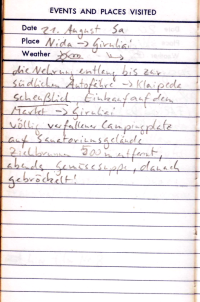 EVENTS AND PLACES VISITED
Date 21. August Sa
Place Nida → Giruliai
Weather
die Nehrung entlang bis zur
südlichen Autofähre → Klaipeda
scheußlich Einkauf auf dem
Markt → Giruliai
völlig verfallener Campingplatz
auf Sanatoriumsgelände
Ziehbrunnen 200m entfernt,
abends Gemüsesuppe, danach
gebröckelt!